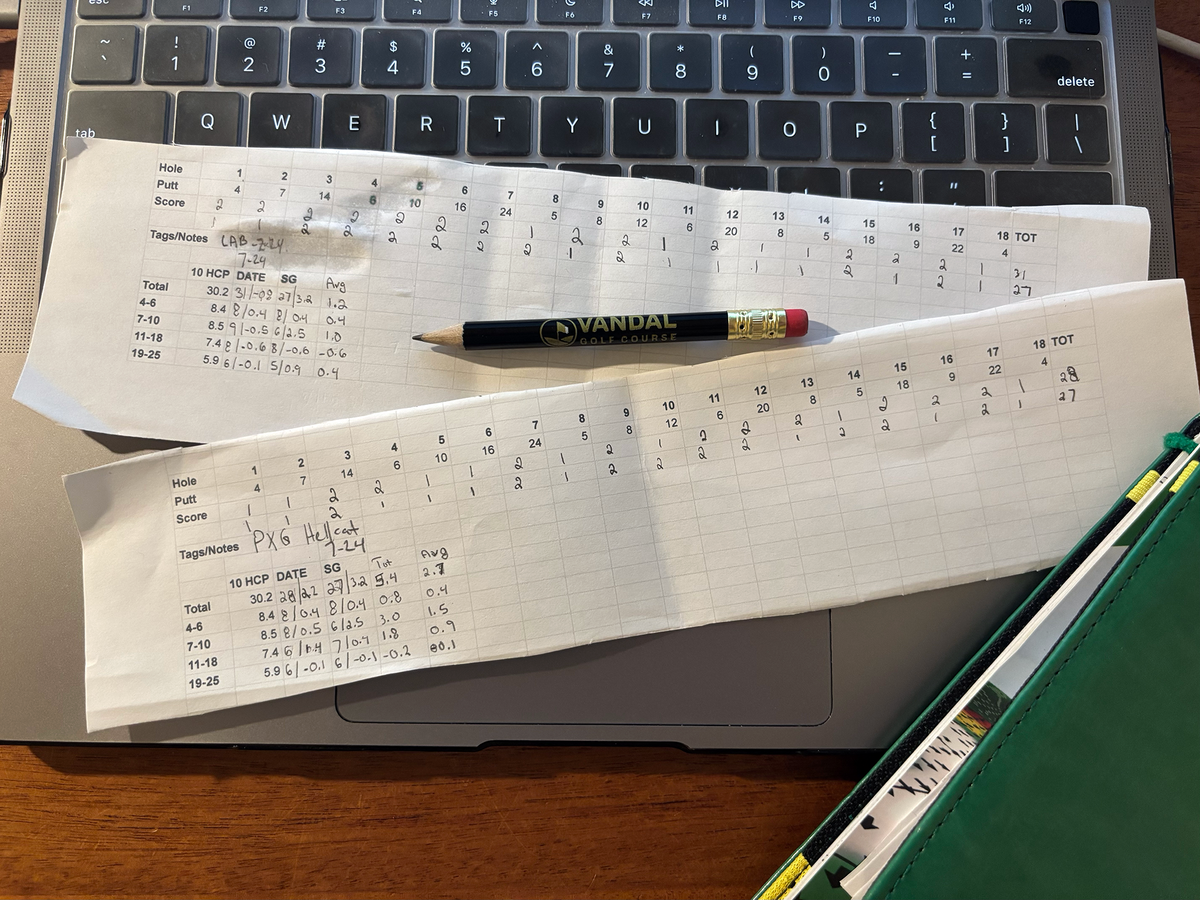 esc F1 F2 F3 F4 F5 F6 F7 F8 F9 F10 F11 F12
~ ` ! 1 @ 2 # 3 $ 4 % 5 ^ 6 & 7 * 8 ( 9 ) 0 — - + = delete
tab Q W E R T Y U I O P { [ } ] | \
: ; "
Hole 1 2 3 4 5 6 7 8 9 10 11 12 13 14 15 16 17 18 TOT
Putt 4 7 14 6 10 16 24 5 8 12 6 20 8 5 18 9 22 4
Score 2 2 2 2 2 2 2 1 2 2 1 2 1 1 2 2 2 1 31
1 1 2 2 2 2 2 2 1 2 1 1 1 1 2 1 2 1 27
Tags/Notes LAB-7-24
7-24
10 HCP DATE SG Avg
Total 30.2 31/-0.8 27/3.2 1.2
4-6 8.4 8/0.4 8/0.4 0.4
7-10 8.5 9/-0.5 6/2.5 1.0
11-18 7.4 8/-0.6 8/-0.6 -0.6
19-25 5.9 6/-0.1 5/0.9 0.4
VANDAL
GOLF COURSE
Hole 1 2 3 4 5 6 7 8 9 10 11 12 13 14 15 16 17 18 TOT
Putt 4 7 14 6 10 16 24 5 8 12 6 20 8 5 18 9 22 4
Score 1 1 2 2 1 1 2 1 2 1 2 2 2 1 2 2 2 1 28
1 1 2 1 1 1 2 1 2 2 2 2 1 2 2 1 2 1 27
Tags/Notes PXG Hellcat
7-24
10 HCP DATE SG Tot Avg
Total 30.2 28/2.2 27/3.2 5.4 2.7
4-6 8.4 8/0.4 8/0.4 0.8 0.4
7-10 8.5 8/0.5 6/2.5 3.0 1.5
11-18 7.4 6/1.4 7/0.4 1.8 0.9
19-25 5.9 6/-0.1 6/-0.1 -0.2 0.1